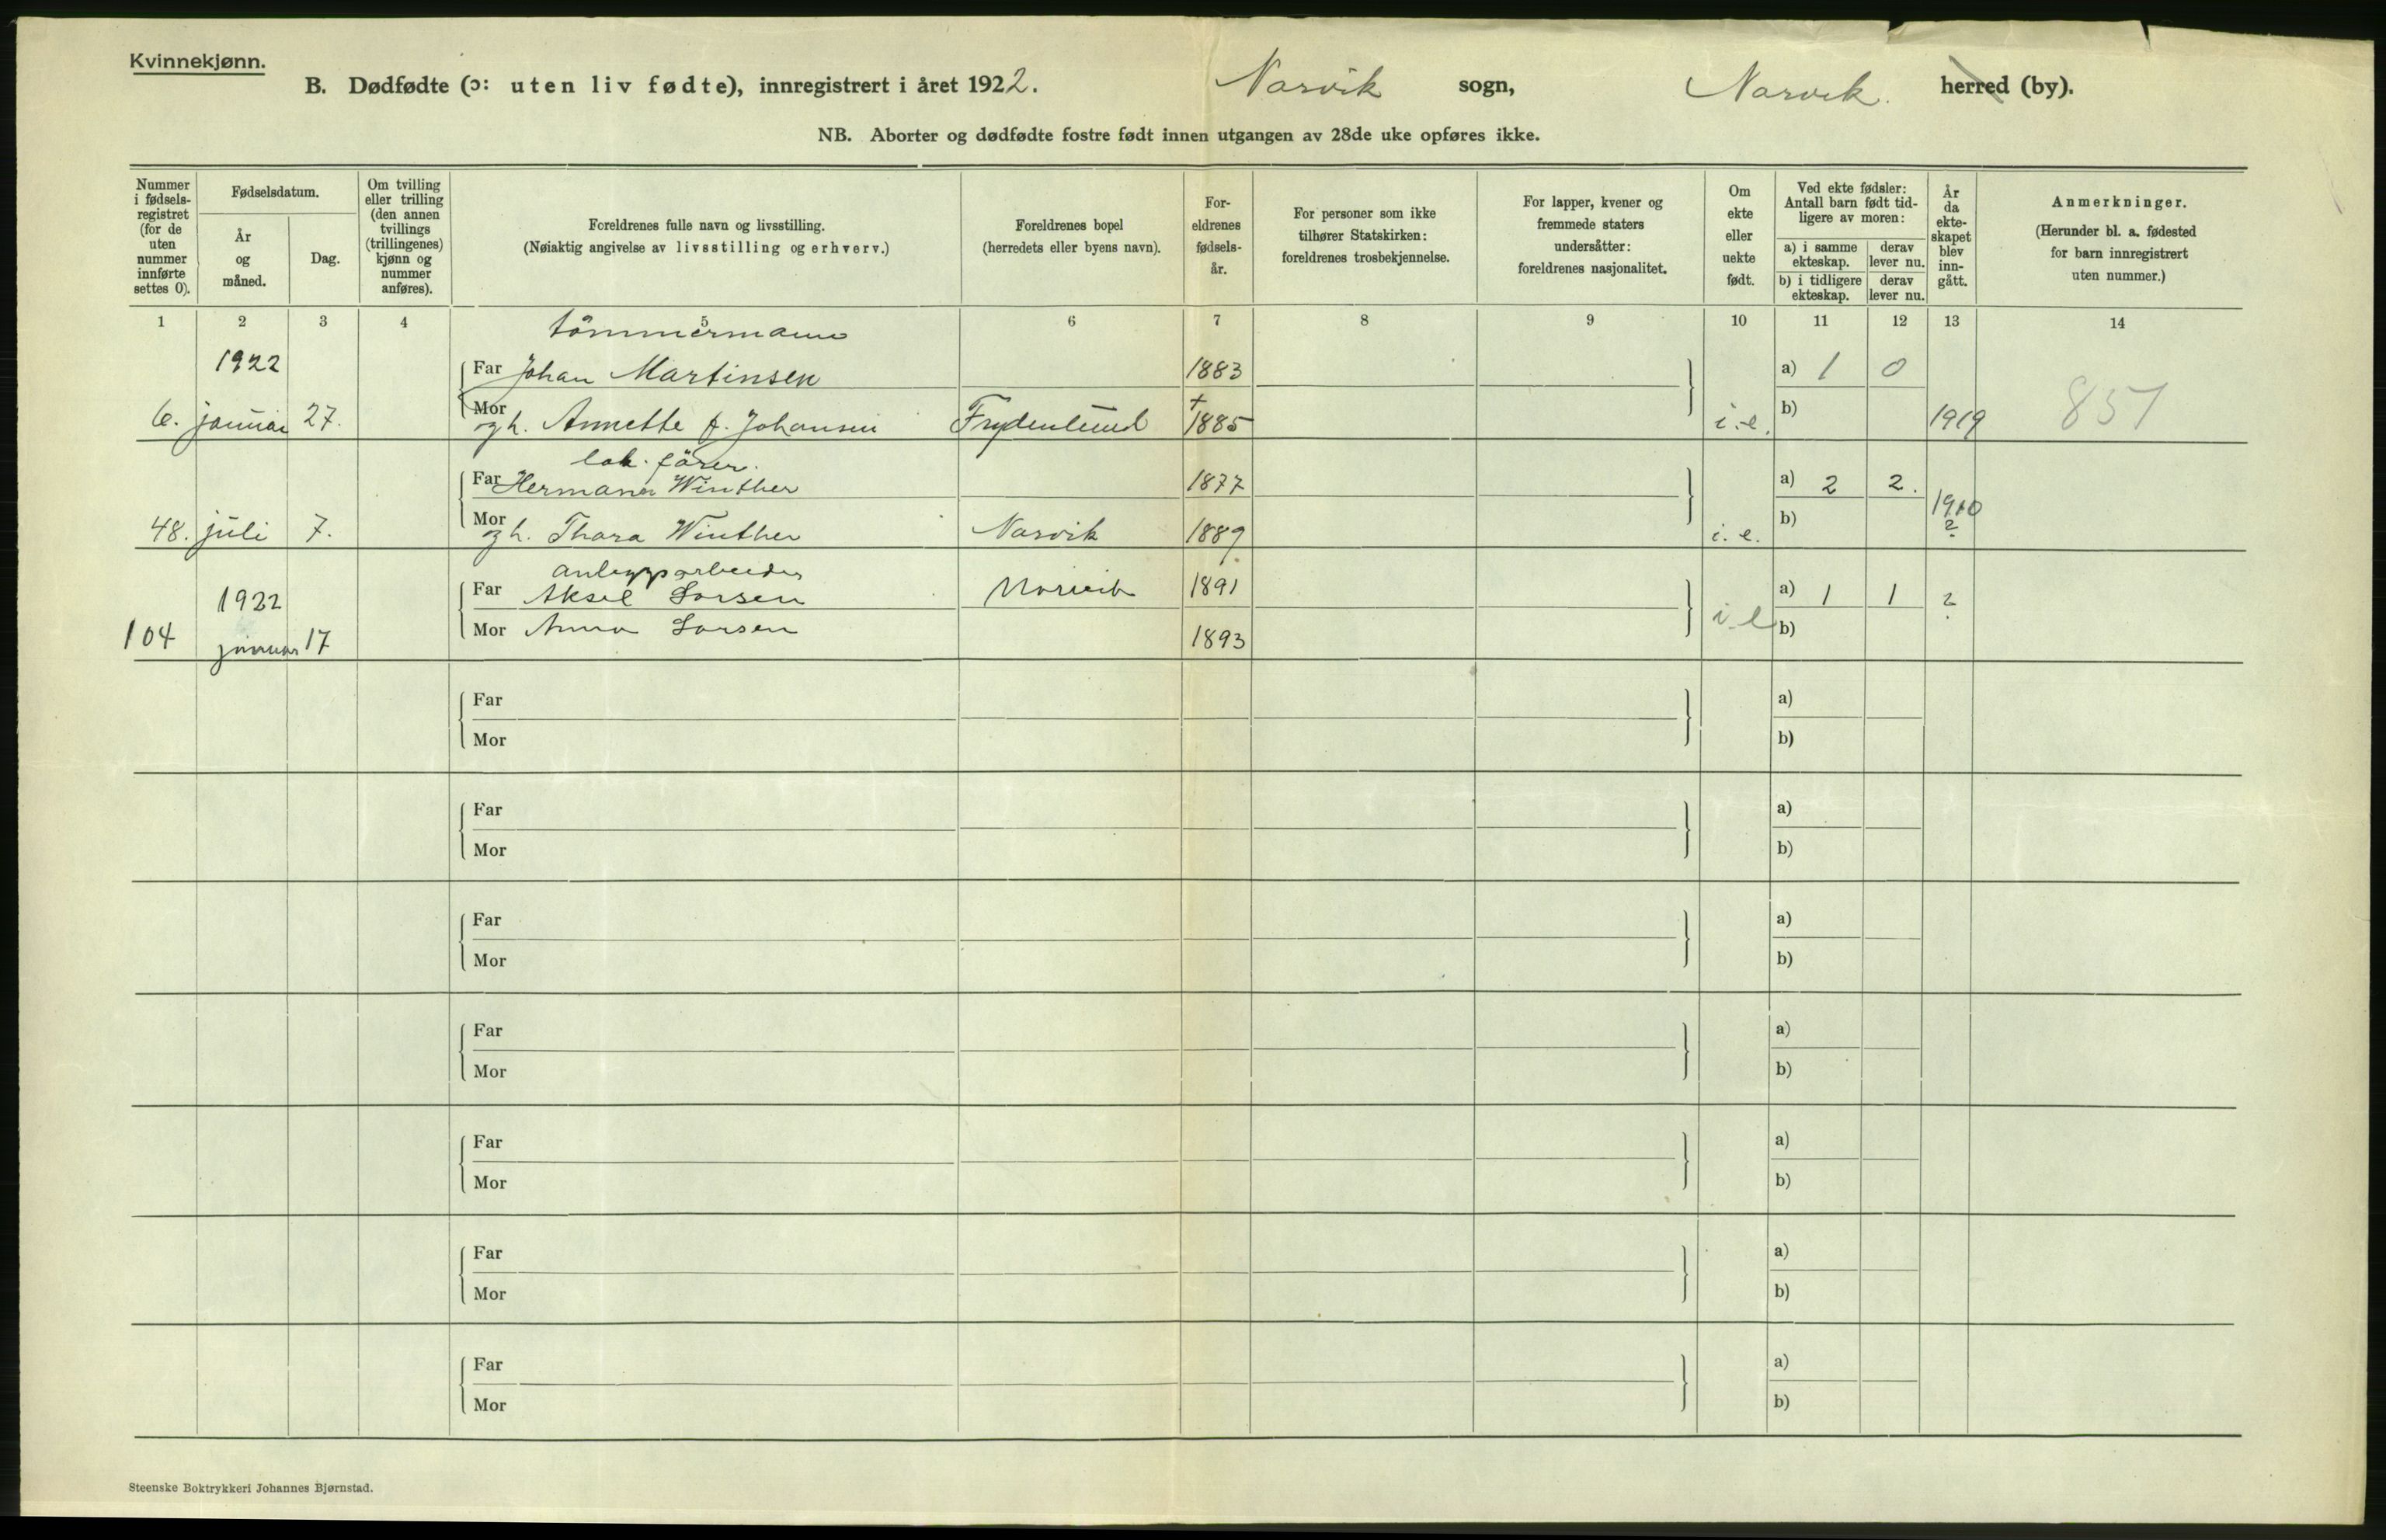 Kvinnekjønn.
B. Dødfødte (ɔ: uten liv fødte), innregistrert i året 1922. Narvik sogn, Narvik. herred (by).
NB. Aborter og dødfødte fostre født innen utgangen av 28de uke opføres ikke.
Nummer i fødsels- registret (for de uten nummer innførte settes 0).
Fødselsdatum.
År og måned.
Dag.
Om tvilling eller trilling (den annen tvillings (trillingenes) kjønn og nummer anføres).
Foreldrenes fulle navn og livsstilling.
(Nøiaktig angivelse av livsstilling og erhverv.)
Foreldrenes bopel
(herredets eller byens navn).
For- eldrenes fødsels- år.
For personer som ikke tilhører Statskirken: foreldrenes trosbekjennelse.
For lapper, kvener og fremmede staters undersåtter: foreldrenes nasjonalitet.
Om ekte eller uekte født.
Ved ekte fødsler: Antall barn født tid- ligere av moren:
a) i samme ekteskap.
derav lever nu.
b) i tidligere ekteskap.
derav lever nu.
År da ekte- skapet blev inn- gått.
Anmerkninger.
(Herunder bl. a. fødested for barn innregistrert uten nummer.)
1 2 3 4 5 6 7 8 9 10 11 12 13 14
tömmermann
1922 Far Johan Martinsen 1883 a) 1 0
6. januar 27. Mor og h. Annette f. Johansen Frydenlund 1885 i.e. b) 1919 857
lok. förer.
Far Hermann Winther 1877 a) 2 2.
48. juli 7. Mor og h. Thora Winther Narvik 1889 i.e. b) 1910 ?
anleggsarbeider
1922 Far Aksel Larsen Narvik 1891 a) 1 1 ?
104 januar 17 Mor Anna Larsen 1893 i e b)
Far a)
Mor b)
Far a)
Mor b)
Far a)
Mor b)
Far a)
Mor b)
Far a)
Mor b)
Far a)
Mor b)
Far a)
Mor b)
Steenske Boktrykkeri Johannes Bjørnstad.